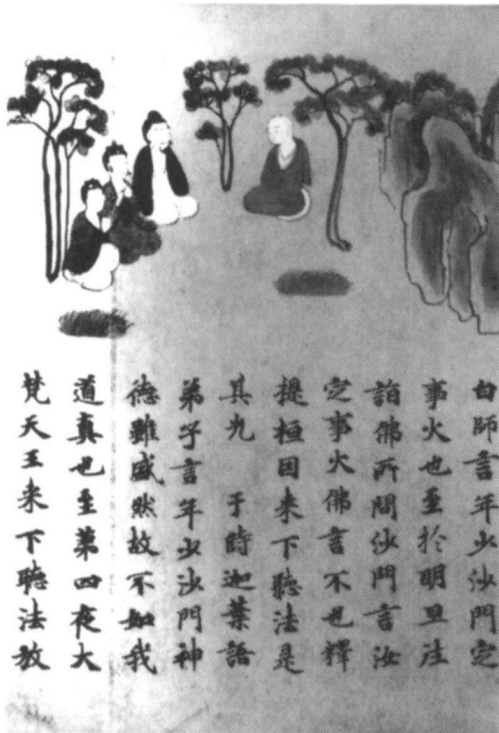 白師言年少沙門定
事火也至於明旦往
詣佛所問沙門言汝
定事火佛言不也釋
提桓因来下聽法是
其光 于時迦葉語
弟子言年少沙門神
德雖盛然故不如我
道真也至第四夜大
梵天王来下聽法放